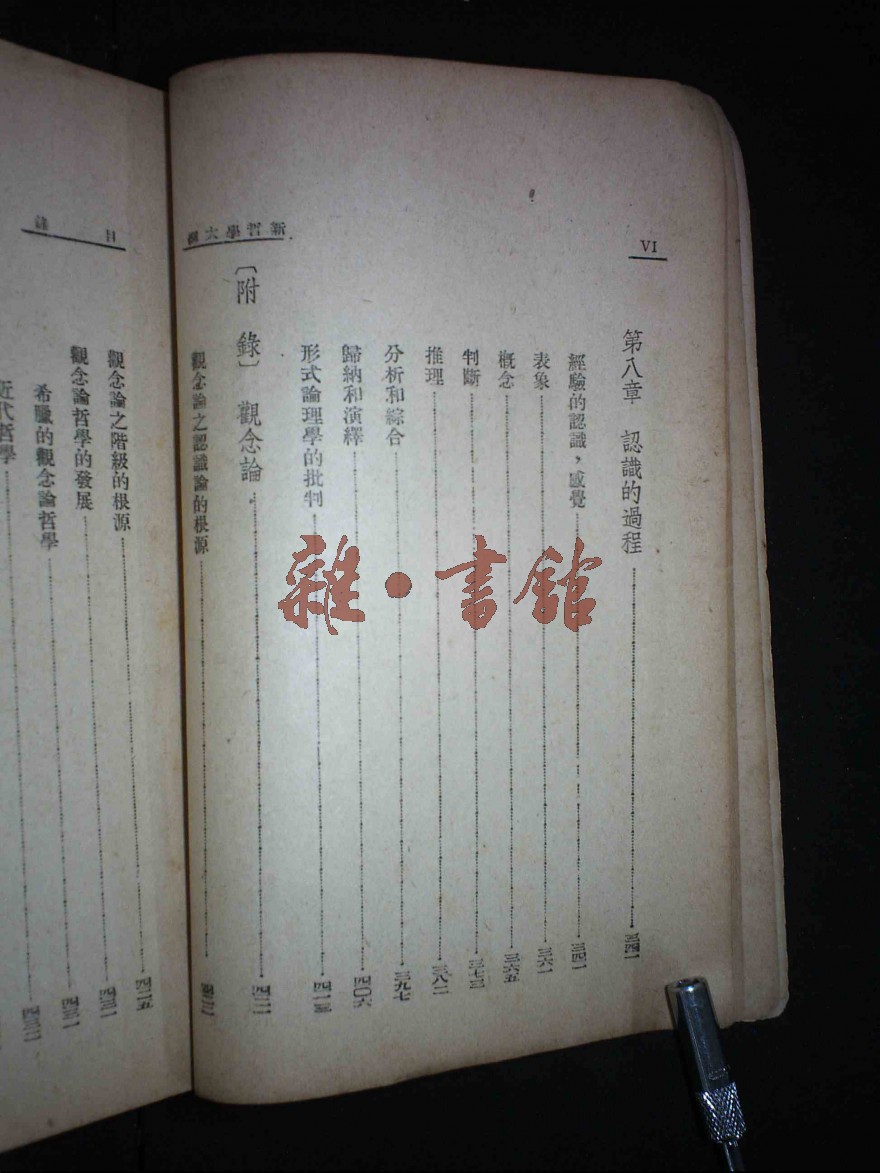 VI
新哲學大綱
第八章 認識的過程……三四一
經驗的認識，感覺……三四一
表象……三六一
概念……三六五
判斷……三七三
推理……三八二
分析和綜合……三九七
歸納和演繹……四〇六
形式論理學的批判……四一五
〔附 錄〕 觀念論……
觀念論之認識論的根源……
目錄
觀念論之階級的根源……四二五
觀念論哲學的發展……四三一
希臘的觀念論哲學……
近代哲學……
雜·書館